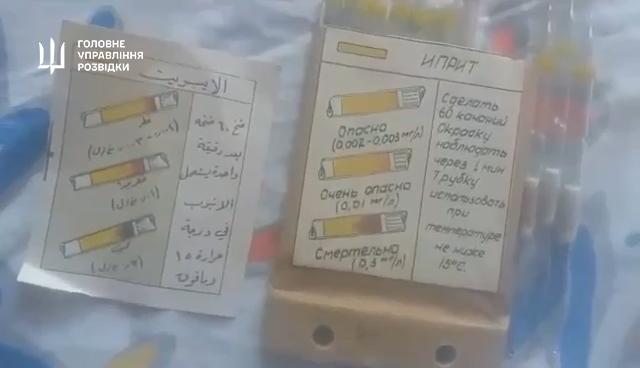 ГОЛОВНЕ
УПРАВЛІННЯ
РОЗВІДКИ
الايبريت
خطر
ضخ ٦٠ ضخه
بعد دقيقة
واحدة يستعمل
الانبوب
في درجة
حرارة ١٥
ومافوق
ИПРИТ
Опасно
(0,002-0,003 мг/л)
Очень опасно
(0,01 мг/л)
Смертельно
(0,3 мг/л)
Сделать
60 качаний
Окраску
наблюдать
через 1 мин
Трубку
использовать
при
температуре
не ниже
15°С.